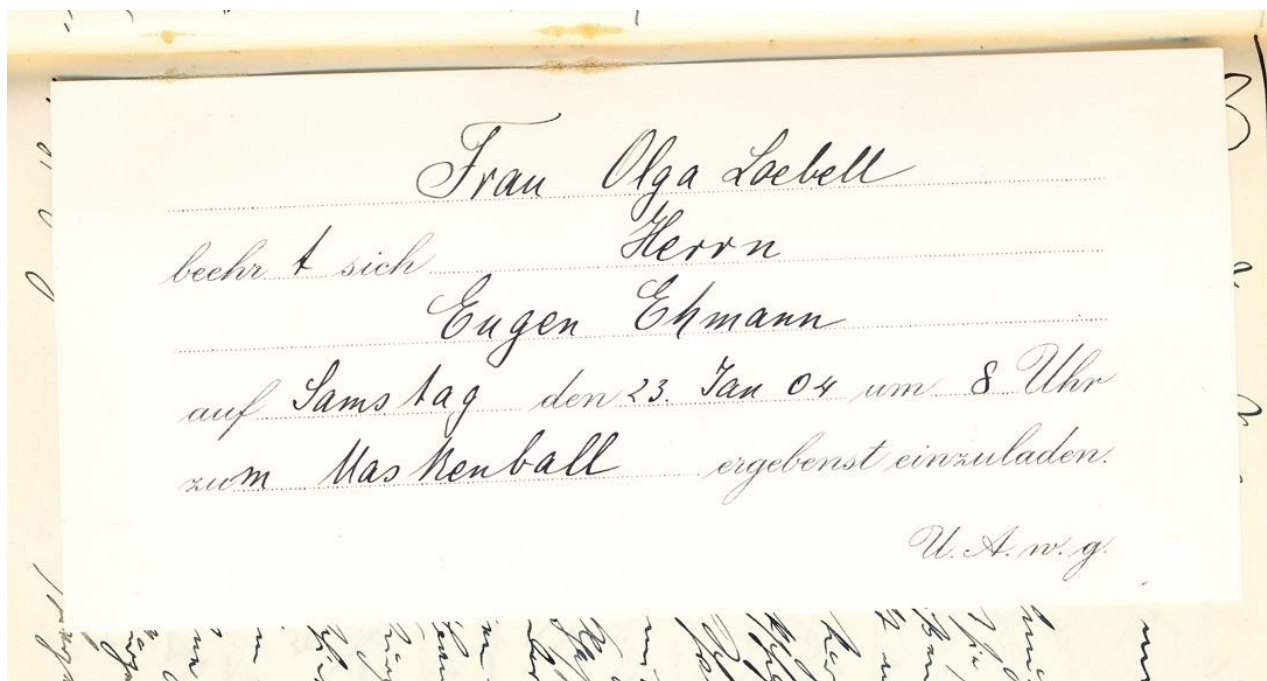 Frau Olga Loebell
beehrt sich Herrn
Eugen Ehmann
auf Samstag den 23. Jan 04 um 8 Uhr
zum Maskenball ergebenst einzuladen.
U. A. w. g.